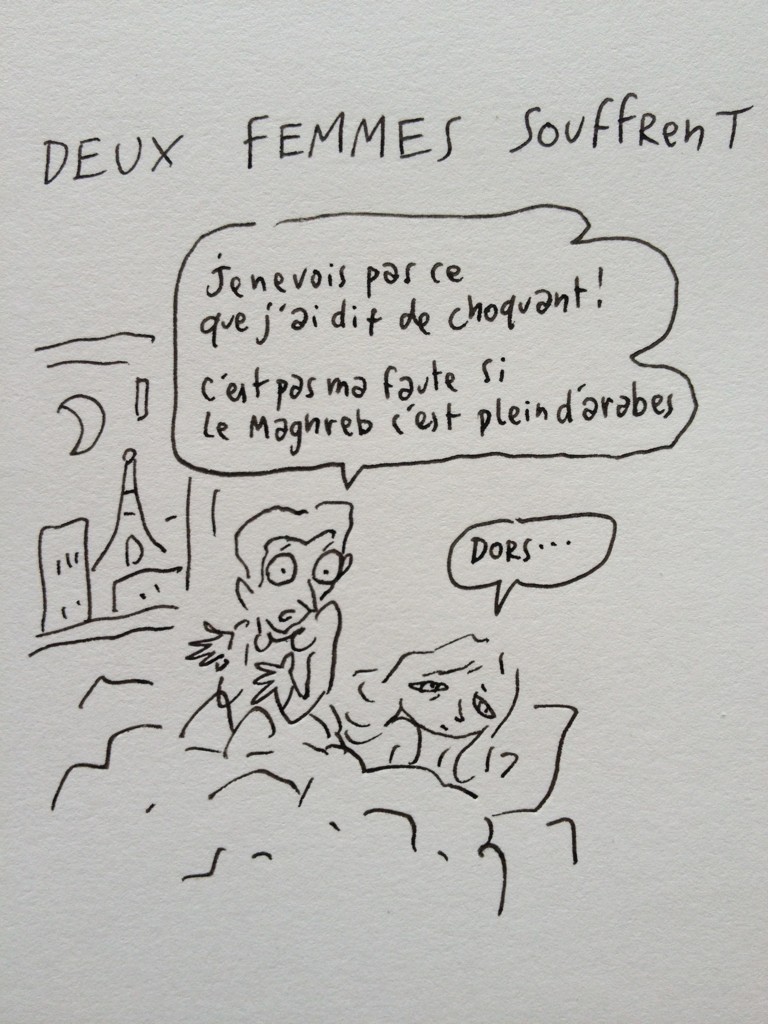 DEUX FEMMES SOUFFRENT
je ne vois pas ce
que j'ai dit de choquant!
c'est pas ma faute si
Le Maghreb c'est plein d'arabes
DORS...